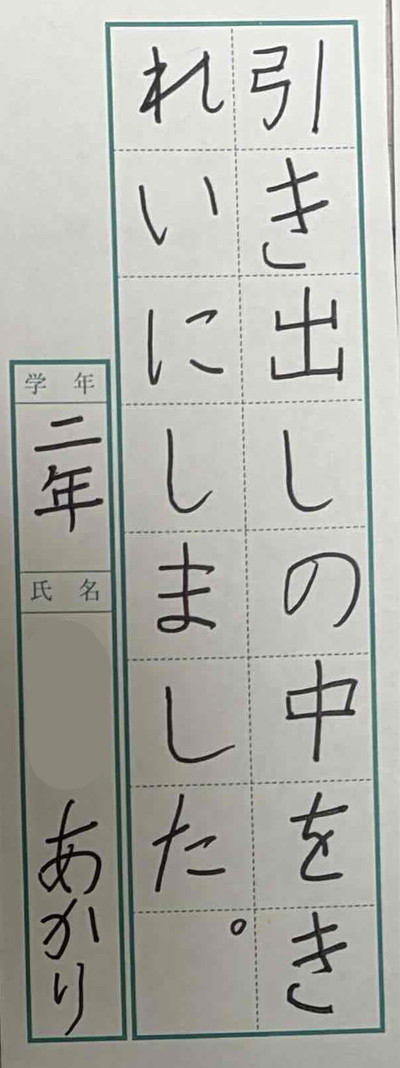 引き出しの中をき
れいにしました。
学年
二年
氏名
あかり